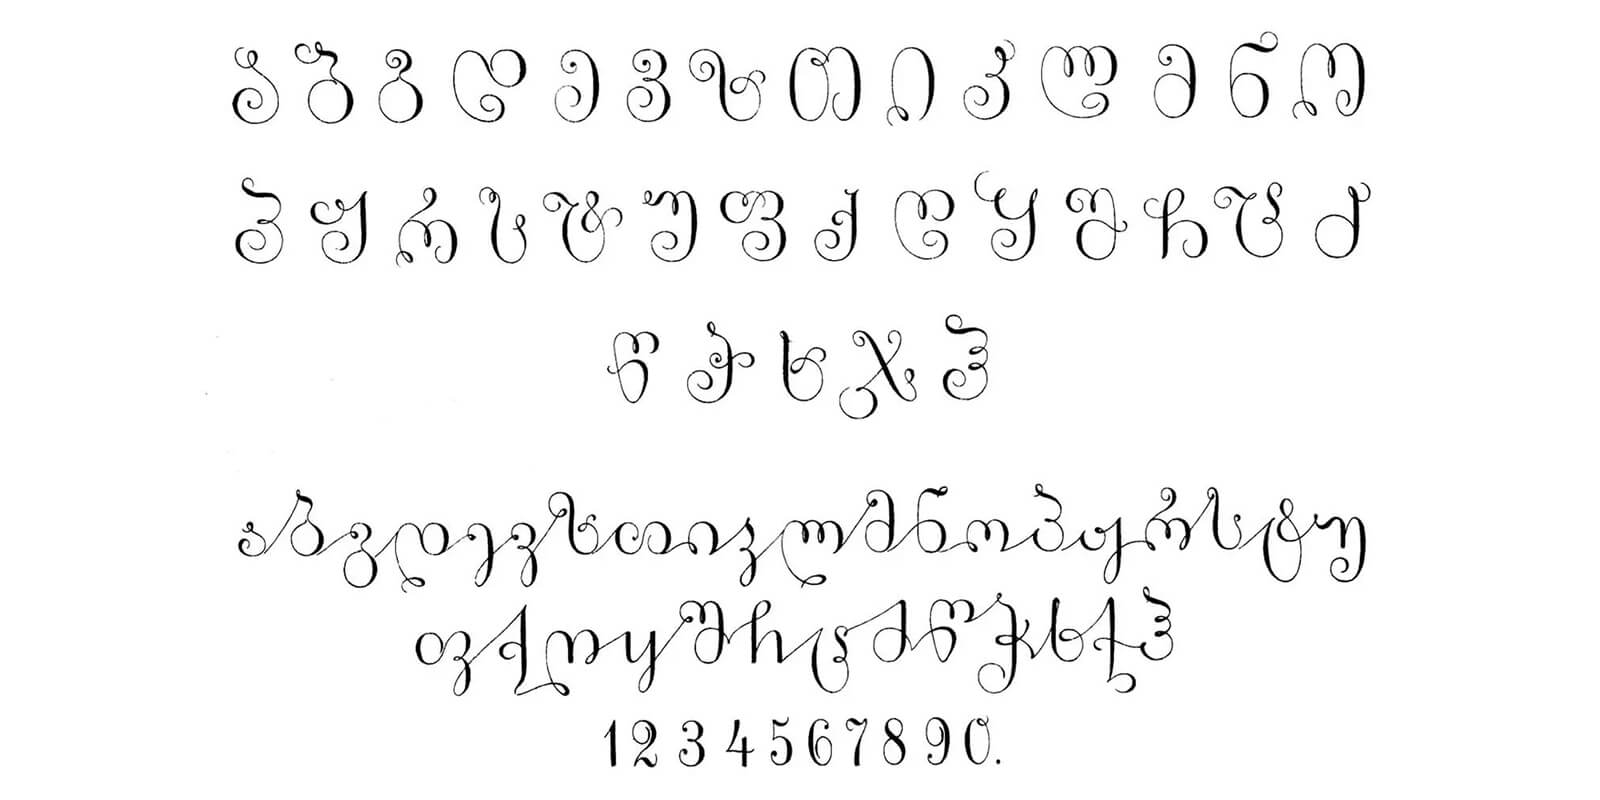 ა ბ გ დ ე ვ ზ თ ი კ ლ მ ნ ო
პ ჟ რ ს ტ უ ფ ქ ღ ყ შ ჩ ც ძ
წ ჭ ხ ჯ ჰ
აბგდევზთიკლმნოპჟრსტუ
ფქღყშჩცძწჭხჯჰ
1234567890.